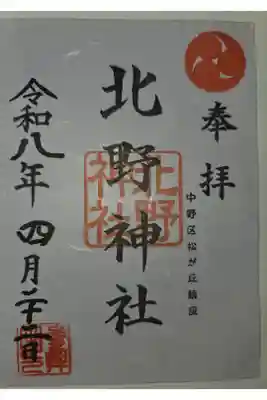 奉拝
中野区松が丘鎮座
北野神社
北野神社
令和八年四月二十三日